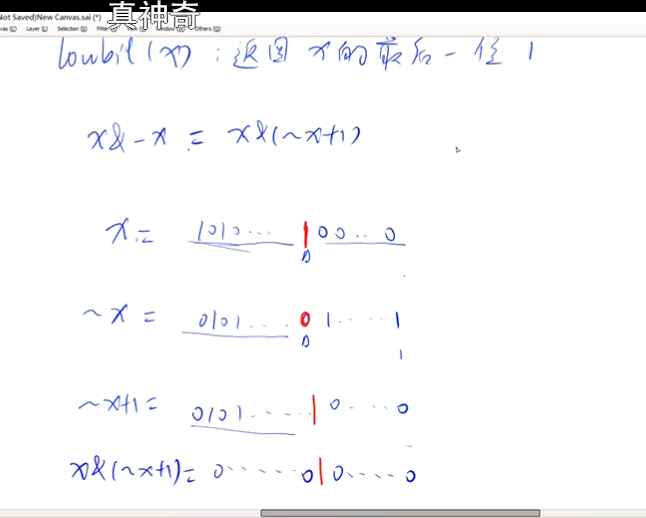 真神奇
Not Saved)New Canvas.sai (*)
Layer (L) Selection (S) Filter Window Others (O)
lowbit(x) : 返回 x 的最后一位 1
x&-x = x&(~x+1)
x = 1010... 1 00...0
~x = 0101.... 0 1.....1
1
~x+1 = 0101..... 1 0....0
x&(~x+1) = 0.....0 1 0....0